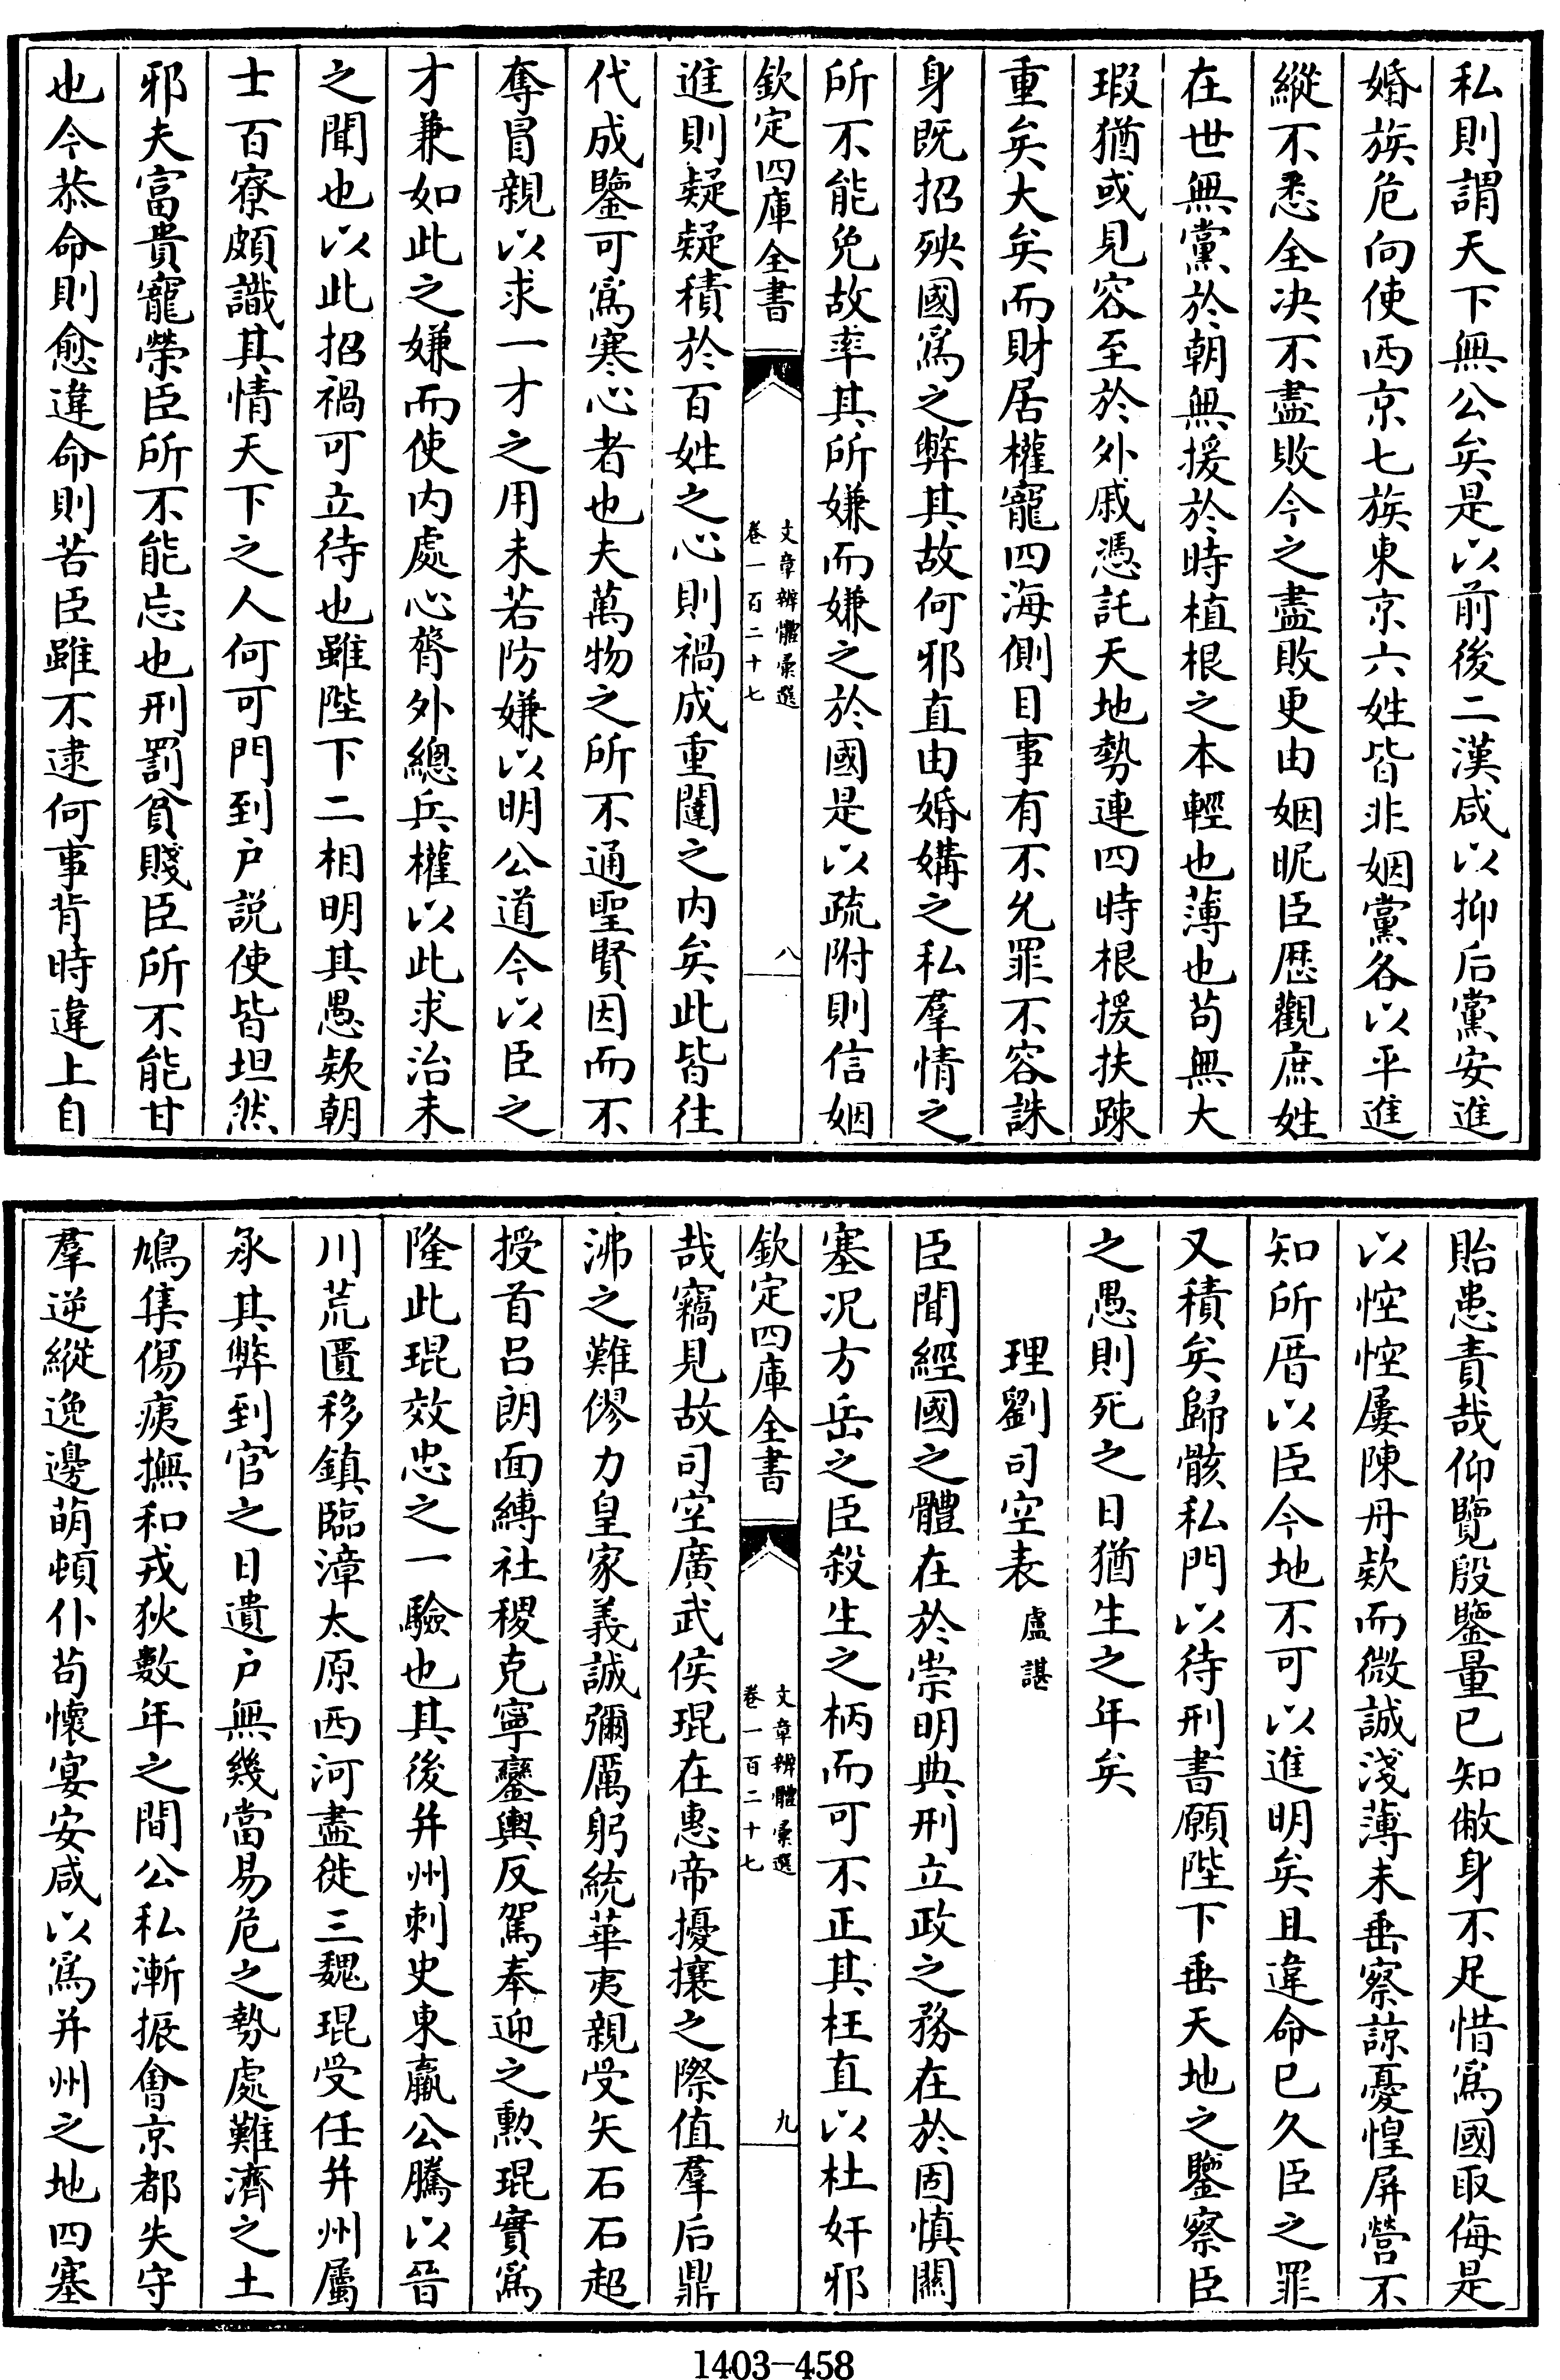 私則謂天下無公矣是以前後二漢咸以抑后黨安進
婚族危向使西京七族東京六姓皆非姻黨各以平進
縱不悉全决不盡敗今之盡敗更由姻昵臣歴觀庶姓
在世無黨於朝無援於時植根之本輕也薄也茍無大
瑕猶或見容至於外戚憑託天地勢連四時根援扶踈
重矣大矣而財居權寵四海側目事有不允罪不容誅
身既招殃國爲之弊其故何邪直由婚媾之私羣情之
所不能免故率其所嫌而嫌之於國是以疏附則信姻
欽定四庫全書
文章辨體彚選
卷一百二十七
八
進則疑疑積於百姓之心則禍成重闥之内矣此皆往
代成鑒可爲寒心者也夫萬物之所不通聖賢因而不
奪冒親以求一才之用未若防嫌以明公道今以臣之
才兼如此之嫌而使内處心膂外總兵權以此求治未
之聞也以此招禍可立待也雖陛下二相明其愚欵朝
士百寮頗識其情天下之人何可門到户説使皆坦然
邪夫富貴寵榮臣所不能忘也刑罰貧賤臣所不能甘
也今恭命則愈違命則苦臣雖不逮何事背時違上自
貽患責哉仰覽殷鑒量已知敝身不足惜爲國取侮是
以悾悾屢陳丹欵而微誠淺薄未垂察諒憂惶屏營不
知所厝以臣今地不可以進明矣且違命已久臣之罪
又積矣歸骸私門以待刑書願陛下垂天地之鑒察臣
之愚則死之日猶生之年矣
理劉司空表 盧諶
臣聞經國之體在於崇明典刑立政之務在於固慎關
塞况方岳之臣殺生之柄而可不正其枉直以杜奸邪
欽定四庫全書
文章辨體彚選
卷一百二十七
九
哉竊見故司空廣武侯琨在惠帝擾攘之際值羣后鼎
沸之難僇力皇家義誠彌厲躬統華夷親受矢石石超
授首吕朗面縛社稷克寧鑾輿反駕奉迎之勲琨實爲
隆此琨效忠之一驗也其後并州刺史東嬴公騰以晉
川荒匱移鎮臨漳太原西河盡徙三魏琨受任并州屬
承其弊到官之日遺户無幾當易危之勢處難濟之土
鳩集傷痍撫和戎狄數年之間公私漸振會京都失守
羣逆縱逸邊萌頓仆茍懷宴安咸以爲并州之地四塞
1403-458